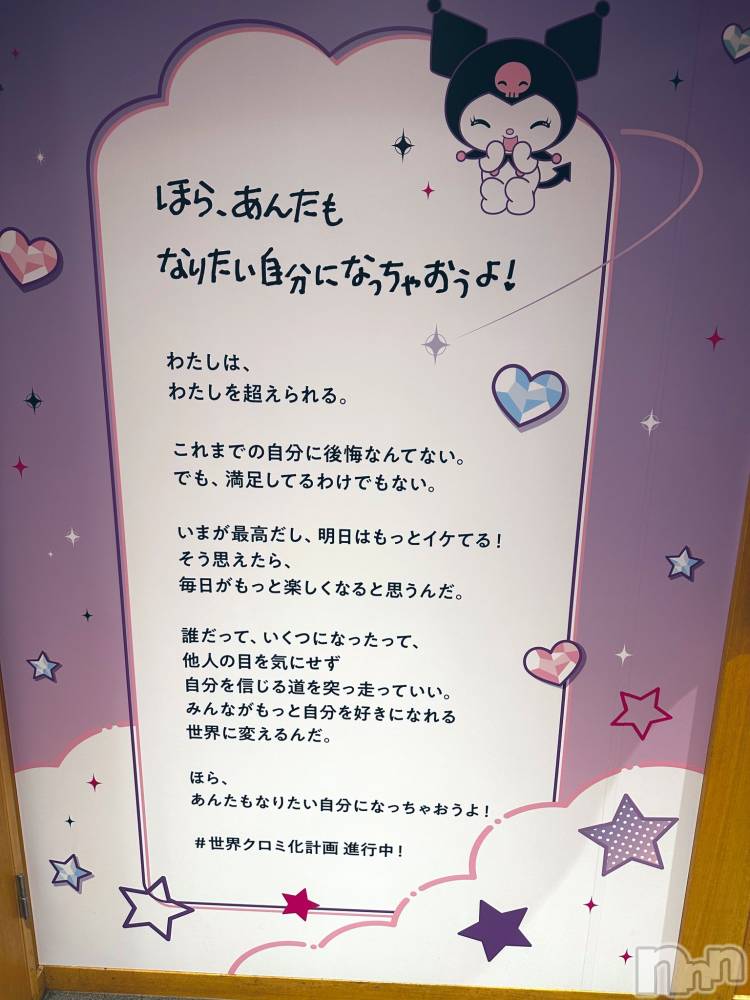 ほら、あんたも
なりたい自分になっちゃおうよ!
わたしは、
わたしを超えられる。
これまでの自分に後悔なんてない。
でも、満足してるわけでもない。
いまが最高だし、明日はもっとイケてる!
そう思えたら、
毎日がもっと楽しくなると思うんだ。
誰だって、いくつになったって、
他人の目を気にせず
自分を信じる道を突っ走っていい。
みんながもっと自分を好きになれる
世界に変えるんだ。
ほら、
あんたもなりたい自分になっちゃおうよ!
#世界クロミ化計画 進行中!
nnn